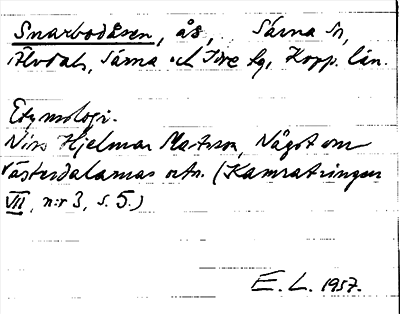 Snarbodåsen, ås, Särna sn,
Älvdals, Särna och Idre tg, Kopp. län.
Etymologi.
Nils Hjelmar Matsson, Något om
Västerdalarnas ortn. (Kamratringen
VII, n:r 3, s. 5.)
E. L. 1957.